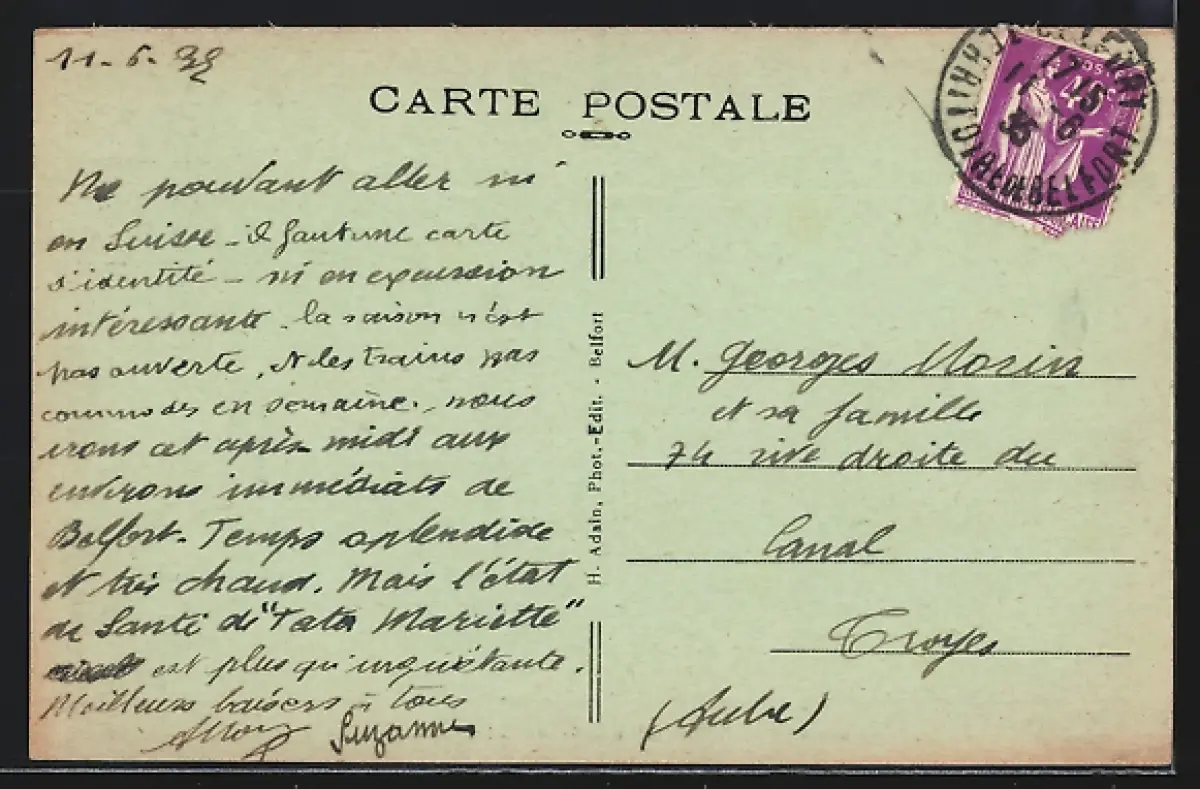 11-6-35
CARTE POSTALE
Ne pouvant aller ni
en Suisse - il faut une carte
d'identité - ni en excursion
intéressante. la saison n'est
pas ouverte, et les trains pas
commodes en semaine, nous
irons cet après-midi aux
environs immédiats de
Belfort. Temps splendide
et très chaud. Mais l'état
de Santé de "Tata Mariette"
est plus qu'inquiétante.
Meilleurs baisers à tous
Suzanne
H. Adain, Phot.-Edit. - Belfort
17 15
11 - 6
35
BELFORT
POSTES
M. Georges Morin
et sa famille
74 rive droite du
Canal
Troyes
(Aube)